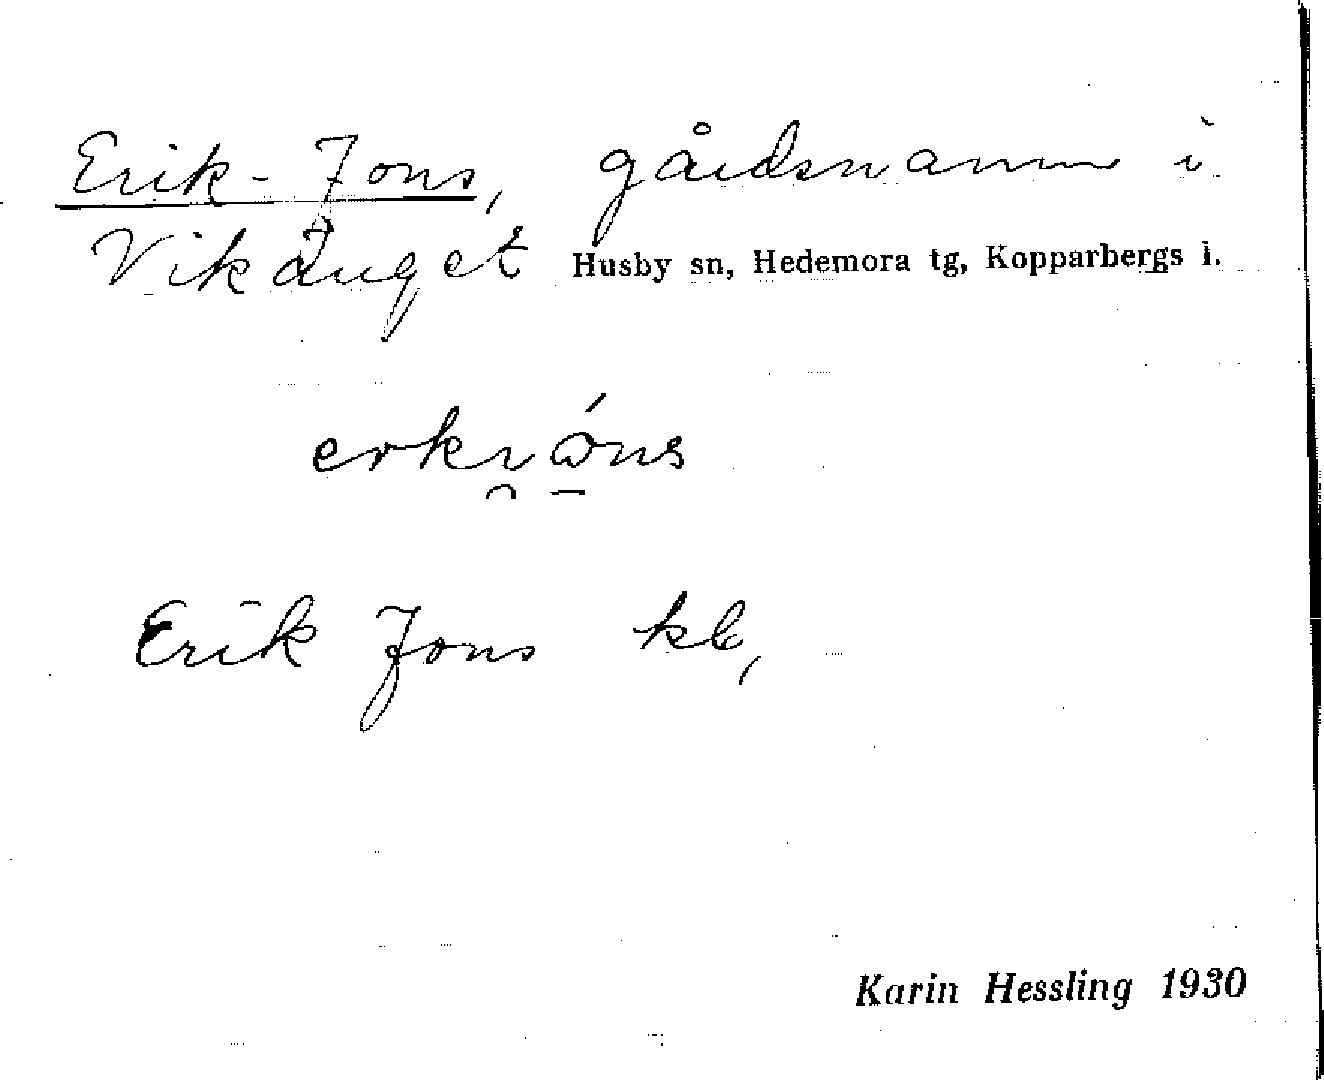 Erik-Jons, gårdsnamn i
Vikänget Husby sn, Hedemora tg, Kopparbergs l.
Erik Jons kb,
Karin Hessling 1930